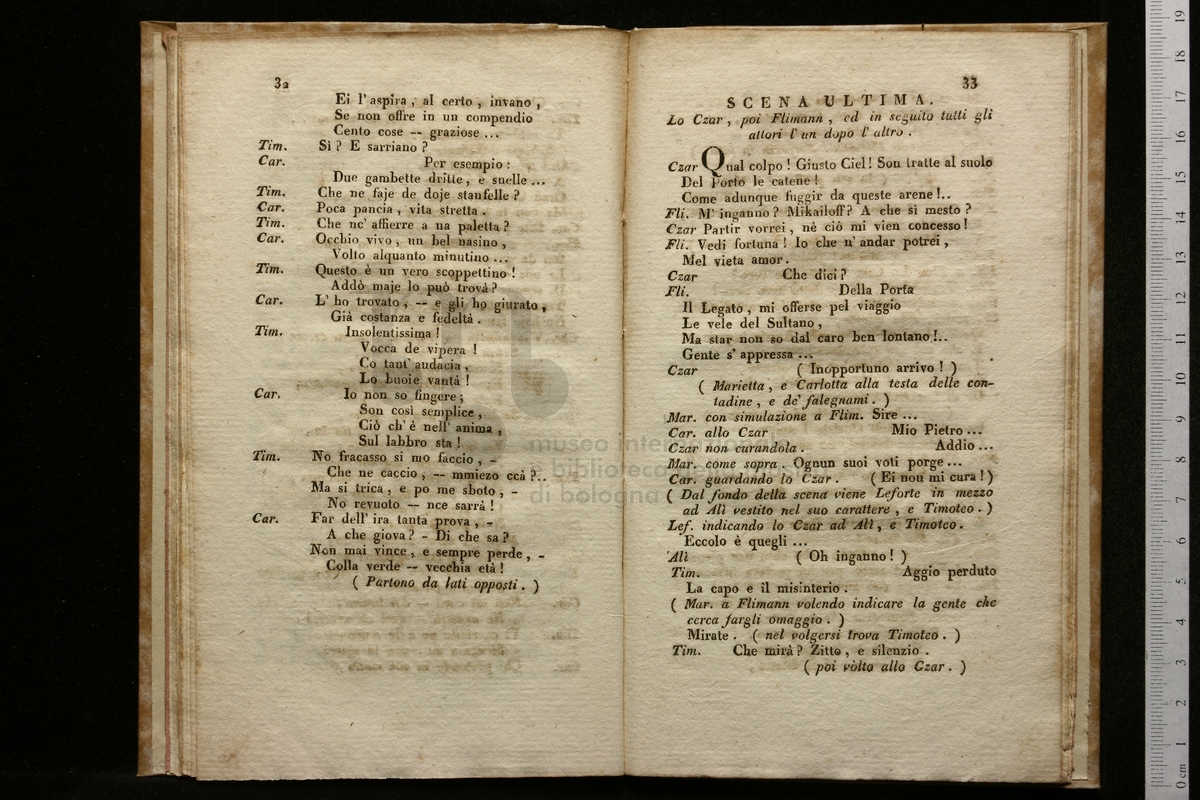 32
Ei l'aspira, al certo, invano,
Se non offre in un compendio
Cento cose -- graziose ...
Tim. Sì? E sarriano?
Car. Per esempio:
Due gambette dritte, e snelle ...
Tim. Che ne faje de doje stanfelle?
Car. Poca pancia, vita stretta.
Tim. Che nc'affierre a na paletta?
Car. Occhio vivo, un bel nasino,
Volto alquanto minutino ...
Tim. Questo è un vero scoppettino!
Addò maje lo può trovà?
Car. L'ho trovato, -- e gli ho giurato,
Già costanza e fedeltà.
Tim. Insolentissima!
Vocca de vipera!
Co tant'audacia,
Lo buoie vantà!
Car. Io non so fingere;
Son così semplice,
Ciò ch'è nell'anima,
Sul labbro sta!
Tim. No fracasso si mo faccio, -
Che ne caccio, -- mmiezo ccà?..
Ma si trica, e po me sboto, -
No revuoto -- nce sarrà!
Car. Far dell'ira tanta prova, -
A che giova? - Di che sa?
Non mai vince, e sempre perde, -
Colla verde -- vecchia età!
( Partono da lati opposti. )
33
SCENA ULTIMA.
Lo Czar, poi Flimann, ed in seguito tutti gli
attori l'un dopo l'altro.
Czar Qual colpo! Giusto Ciel! Son tratte al suolo
Del Porto le catene!
Come adunque fuggir da queste arene!..
Fli. M'inganno? Mikailoff? A che sì mesto?
Czar Partir vorrei, nè ciò mi vien concesso!
Fli. Vedi fortuna! Io che n'andar potrei,
Mel vieta amor.
Czar Che dici?
Fli. Della Porta
Il Legato, mi offerse pel viaggio
Le vele del Sultano,
Ma star non so dal caro ben lontano!..
Gente s'appressa ...
Czar ( Inopportuno arrivo! )
( Marietta, e Carlotta alla testa delle con-
tadine, e de' falegnami. )
Mar. con simulazione a Flim. Sire ...
Car. allo Czar Mio Pietro ...
Czar non curandola. Addio ...
Mar. come sopra. Ognun suoi voti porge ...
Car. guardando lo Czar. ( Ei non mi cura! )
( Dal fondo della scena viene Leforte in mezzo
ad Alì vestito nel suo carattere, e Timoteo. )
Lef. indicando lo Czar ad Alì, e Timoteo.
Eccolo è quegli ...
Alì ( Oh inganno! )
Tim. Aggio perduto
La capo e il misinterio.
( Mar. a Flimann volendo indicare la gente che
cerca fargli omaggio. )
Mirate. ( nel volgersi trova Timoteo. )
Tim. Che mirà? Zitto, e silenzio.
( poi vòlto allo Czar. )
museo internazionale
e biblioteca della musica
di bologna
0 cm 1 2 3 4 5 6 7 8 9 10 11 12 13 14 15 16 17 18 19